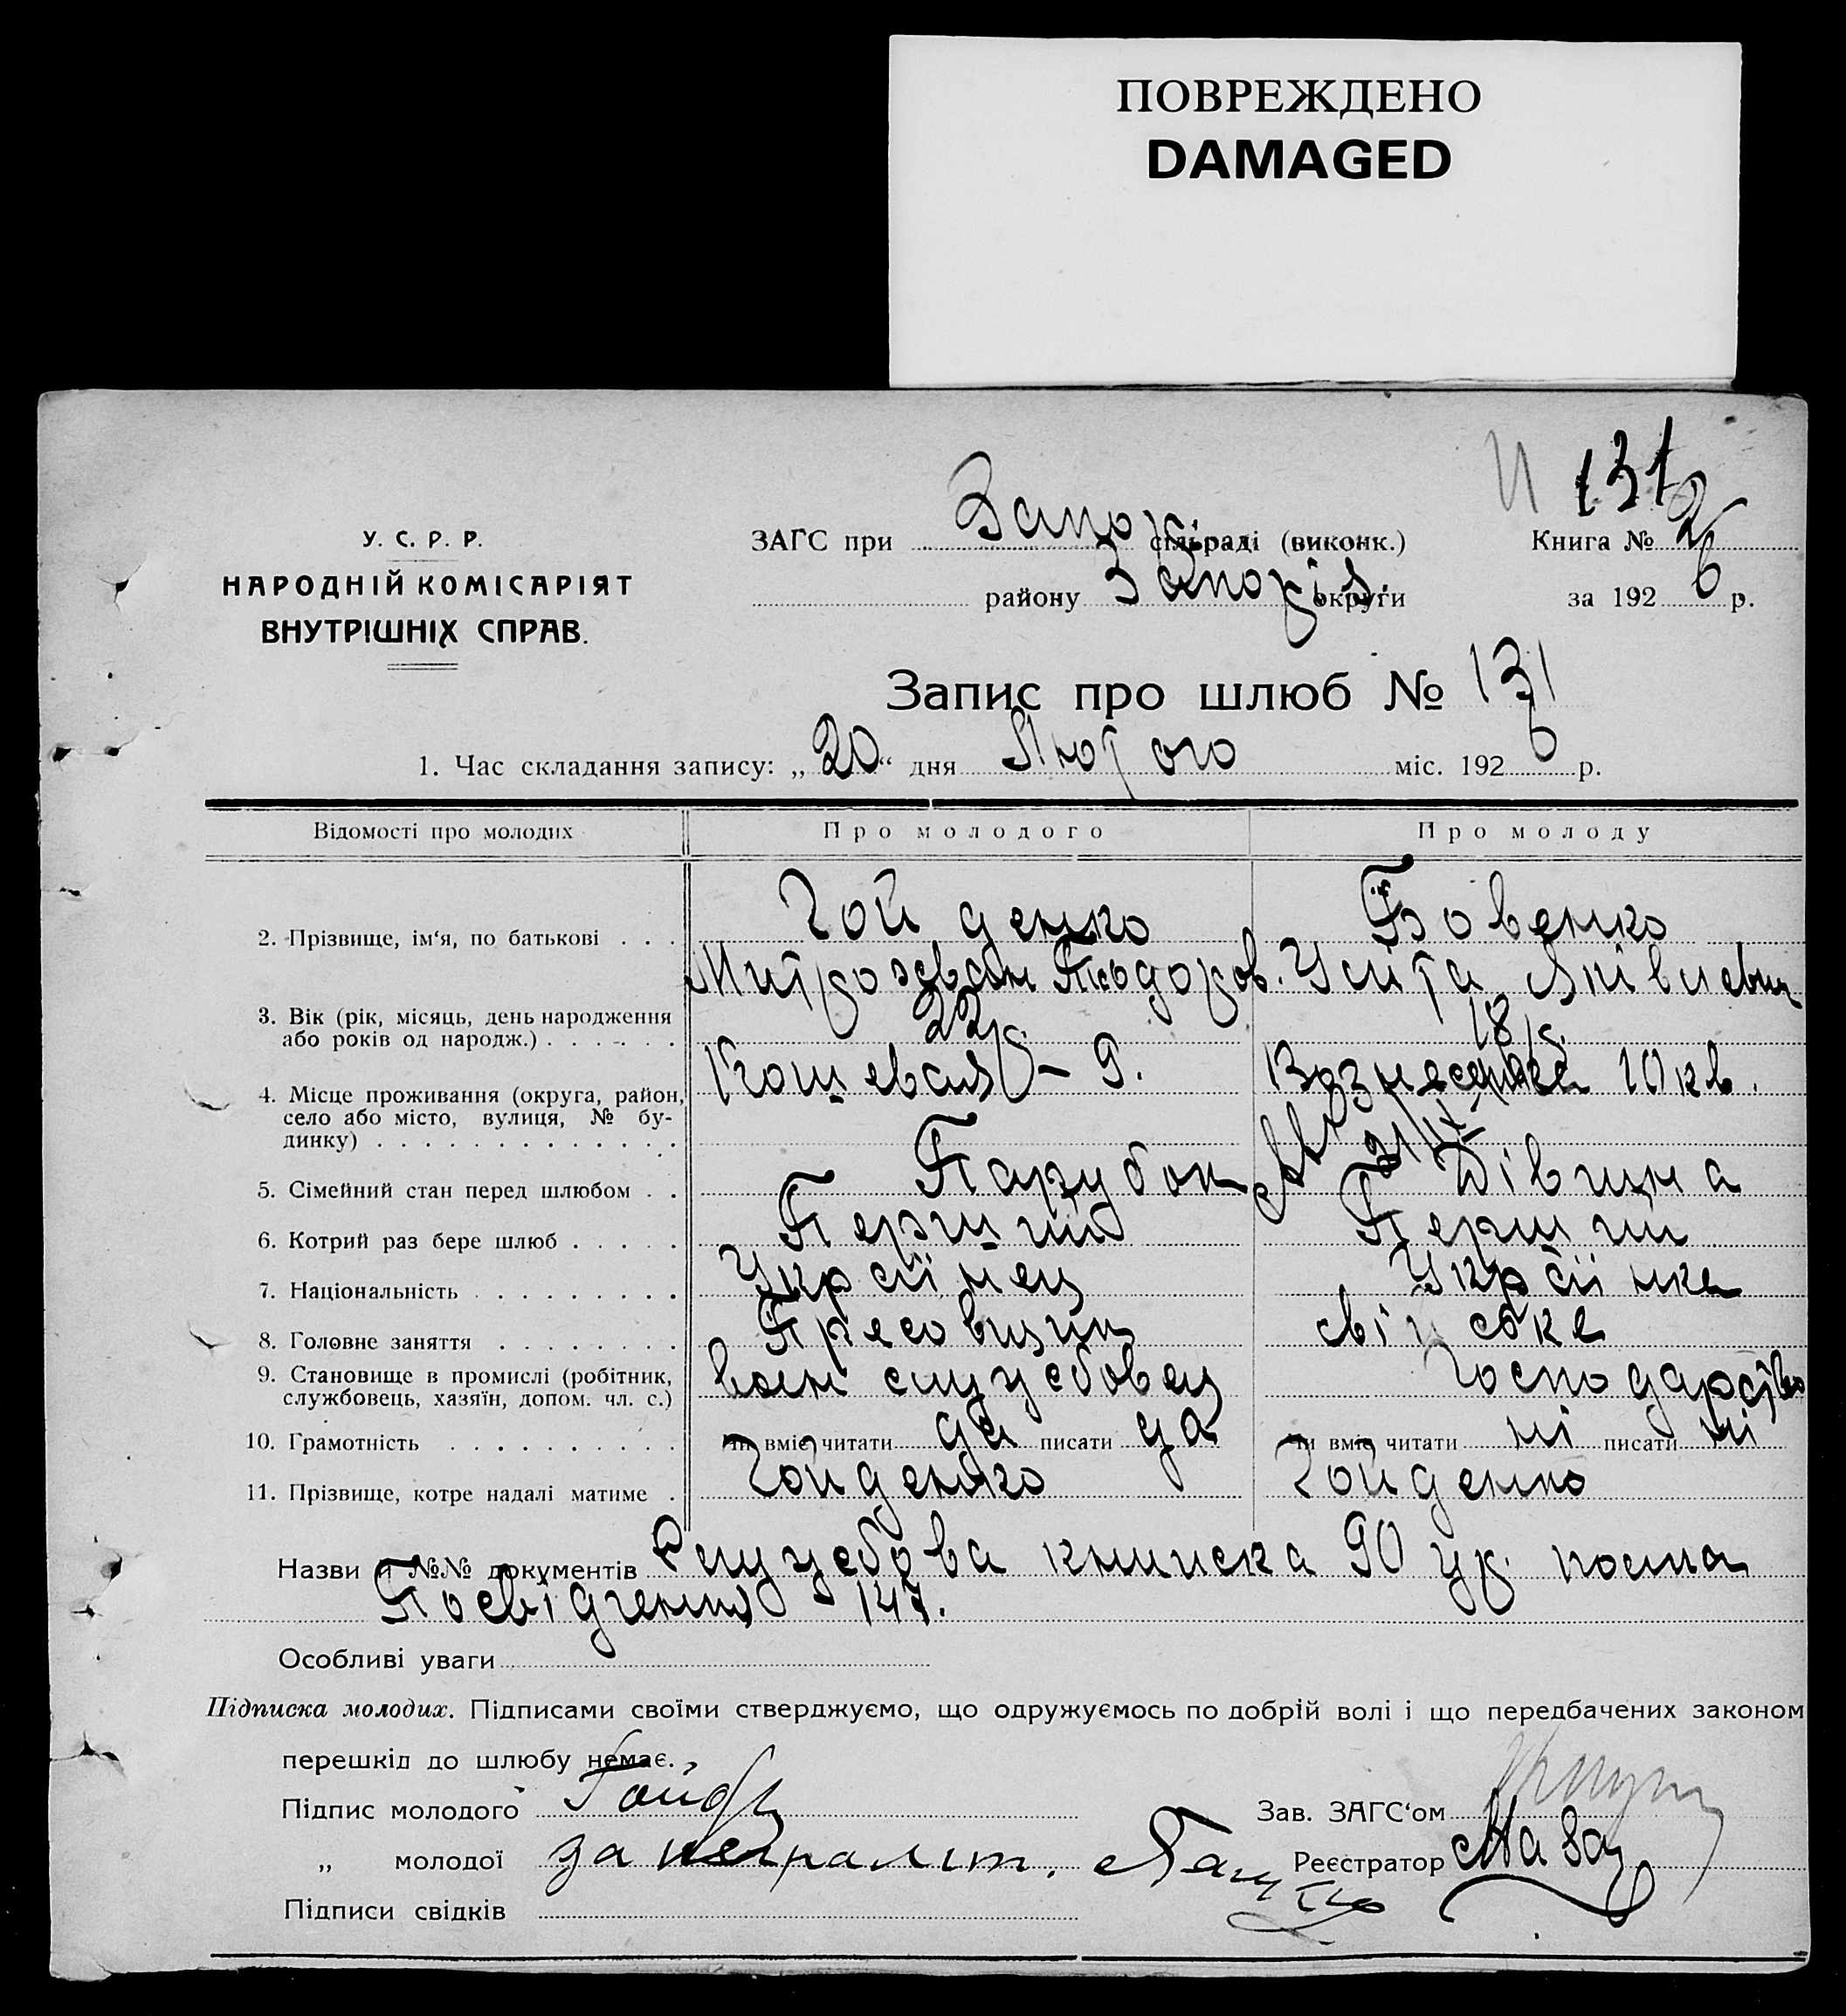 ПОВРЕЖДЕНО
DAMAGED
131
У. С. Р. Р.
НАРОДНІЙ КОМІСАРІЯТ
ВНУТРІШНІХ СПРАВ.
ЗАГС при Запор сільраді (виконк.)
Книга № 2
району Запоріз. округи
за 1926 р.
Запис про шлюб № 131
1. Час складання запису: „20“ дня Лютого міс. 1926 р.
Відомості про молодих Про молодого Про молоду
2. Прізвище, ім'я, по батькові . . . Гойденко Бовенко
Митрозван Тьодоров. Уліта Яківлевн
3. Вік (рік, місяць, день народження або років од народж.) . . . . . . 22 р. 18 р.
4. Місце проживання (округа, район, село або місто, вулиця, № будинку) . . . . . . . . . . . . . Кошевая – 9. Вознесенка 10 кв.
5. Сімейний стан перед шлюбом . . Парубок Дівчина
6. Котрий раз бере шлюб . . . . . Перший Перший
7. Національність . . . . . . . . . Українец Українка
8. Головне заняття . . . . . . . . свійське
9. Становище в промислі (робітник, службовець, хазяїн, допом. чл. с.) воен служебовец господарство
10. Грамотність . . . . . . . . . . Чи вміє читати да писати да Чи вміє читати ні писати ні
11. Прізвище, котре надалі матиме . Гойденко Гойденко
Назви й №№ документів Служебова книжка 90
Посвідчення 147.
Особливі уваги
Підписка молодих. Підписами своїми стверджуємо, що одружуємось по добрій волі і що передбачених законом
перешкід до шлюбу немає.
Підпис молодого Гойд
Зав. ЗАГС‘ом
„ молодої за неграмот.
Реєстратор
Підписи свідків